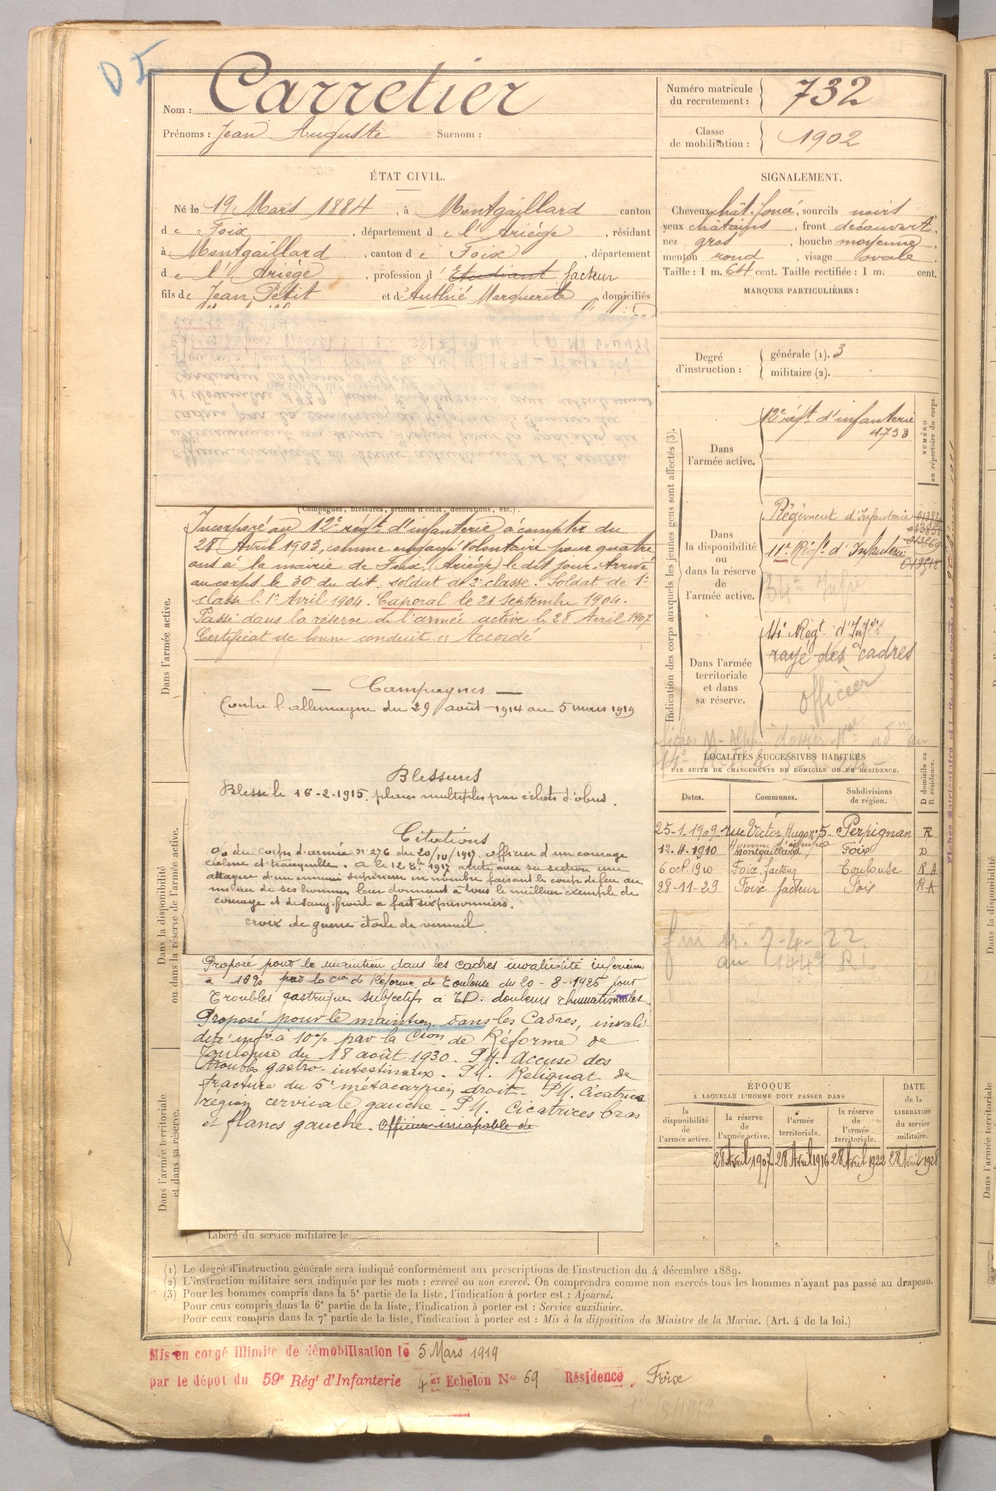 D I
Nom : Carretier
Prénoms : Jean Auguste Surnom :
Numéro matricule du recrutement : 732
Classe de mobilisation : 1902
ÉTAT CIVIL.
Né le 19 Mars 1884, à Montgaillard canton
de Foix, département de l'Ariège, résidant
à Montgaillard, canton de Foix, département
de l'Ariège, profession d'Etudiant facteur
fils de Jean Petit et d'Authié Marguerite, domiciliés
SIGNALEMENT.
Cheveux chât. foncé, sourcils noirs
yeux châtains, front découvert,
nez gros, bouche moyenne,
menton rond, visage ovale.
Taille : 1 m. 64 cent. Taille rectifiée : 1 m. cent.
MARQUES PARTICULIÈRES :
Degré d'instruction : générale (1). 3
militaire (2).
(Campagnes, blessures, actions d'éclat, décorations, etc.).
Dans l'armée active.
Incorporé au 12e régt d'infanterie à compter du
28 Avril 1903, comme engagé volontaire pour quatre
ans à la mairie de Foix (Ariège) le dit jour. Arrivé
au corps le 30 du dit, soldat de 2e classe. Soldat de 1e
classe le 1er Avril 1904. Caporal le 21 Septembre 1904.
Passé dans la réserve de l'armée active le 28 Avril 1907.
Certificat de bonne conduite : Accordé
Dans la disponibilité
ou dans la réserve de l'armée active.
Campagnes
Contre l'allemagne du 29 août 1914 au 5 mars 1919
Blessures
Blessé le 16-2-1915, plaies multiples par éclats d'obus.
Citations
O/ du corps d'armée n° 276 du 20/10/1917. officier d'un courage
calme et tranquille. a le 12 8bre 1917 arrêté avec sa section une
attaque d'un ennemi supérieur en nombre faisant le coup de feu au
milieu de ses hommes leur donnant à tous le meilleur exemple de
courage et de sang-froid a fait six prisonniers.
croix de guerre étoile de vermeil.
Proposé pour le maintien dans les cadres invalidité inférieure
à 10% par la Cion de Réforme de Toulouse du 20-8-1925 pour
Troubles gastriques subjectifs à TD : douleurs rhumatismales.
Proposé pour le maintien dans les Cadres, invali-
dité infre à 10% par la Cion de Réforme de
Toulouse du 18 août 1930. P.M. Accuse des
troubles gastro-intestinaux. P.M. Reliquat de
fracture du 5e métacarpien droit. P.M. Cicatrice
région cervicale gauche. P.M. Cicatrices bras
et flancs gauche. Officier incapable de
Dans l'armée territoriale
et dans sa réserve.
Libéré du service militaire le
Indication des corps auxquels les jeunes gens sont affectés (3).
NUMÉRO
au répertoire du corps.
Dans l'armée active.
12e régt d'infanterie
4733
Dans la disponibilité ou dans la réserve de l'armée active.
Régiment d'Infanterie
11e Régt d'Infanterie
Dans l'armée territoriale et dans sa réserve.
14e Régt d'Infrie
rayé des cadres
officier
LOCALITÉS SUCCESSIVES HABITÉES
PAR SUITE DE CHANGEMENTS DE DOMICILE OU DE RÉSIDENCE.
Dates. Communes. Subdivisions de région. D domicile ou R résidence.
25-1-1909 rue Victor Hugo n° 5. Perpignan R
12-4-1910 Montgaillard Foix D
6 oct. 1910 Foix, facteur Toulouse R A
28-11-29 Foix facteur Foix R A
7-4-22
au 144e R.I.
ÉPOQUE
À LAQUELLE L'HOMME DOIT PASSER DANS
la disponibilité de l'armée active. la réserve de l'armée active. l'armée territoriale. la réserve de l'armée territoriale.
DATE de la LIBÉRATION du service militaire.
28 Avril 1907 28 Avril 1916 28 Avril 1922 28 Avril 1928
(1) Le degré d'instruction générale sera indiqué conformément aux prescriptions de l'instruction du 4 décembre 1889.
(2) L'instruction militaire sera indiquée par les mots : exercé ou non exercé. On comprendra comme non exercés tous les hommes n'ayant pas passé au drapeau.
(3) Pour les hommes compris dans la 5e partie de la liste, l'indication à porter est : Ajourné.
Pour ceux compris dans la 6e partie de la liste, l'indication à porter est : Service auxiliaire.
Pour ceux compris dans la 7e partie de la liste, l'indication à porter est : Mis à la disposition du Ministre de la Marine. (Art. 4 de la loi.)
Mis en congé illimité de démobilisation le 5 Mars 1919
par le dépôt du 59e Régt d'Infanterie 4e Echelon No 69 Résidence, Foix